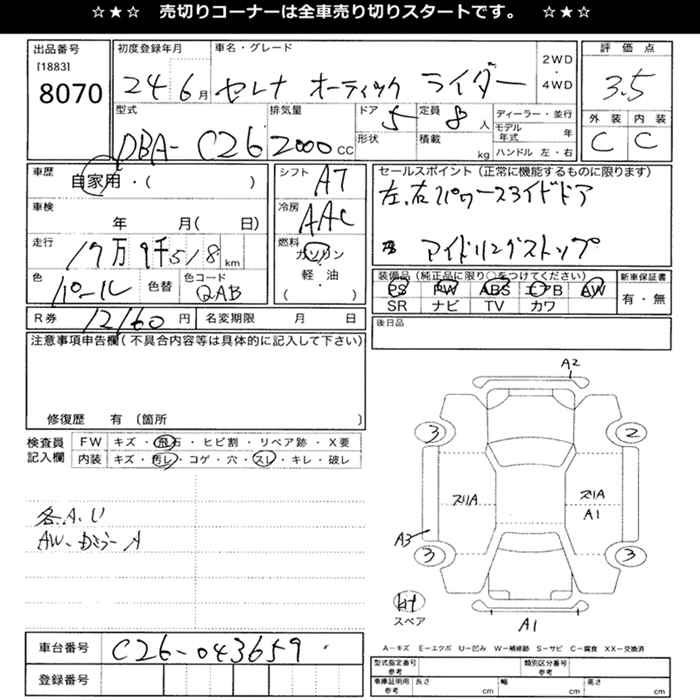 ☆★☆ 売切りコーナーは全車売り切りスタートです。 ☆★☆
出品番号 初度登録年月 車名・グレード 評価点
[1883] 2WD・4WD
8070 24 6月 セレナ オーティック ライダー 3.5
型式 排気量 ドア 5 定員 8人 ディーラー・並行 外装 内装
DBA-C26 2000cc 形状 積載 kg モデル年式 年 C C
ハンドル 左・右
車歴 自家用・( ) シフト AT セールスポイント(正常に機能するものに限ります)
左,右パワースライドドア
車検 年 月( 日) 冷房 AAC
走行 17万9千518km 燃料 ガソリン・軽・油 ( ) アイドリングストップ
色 パール 色替 色コード QAB 装備品(純正品に限り○をつけてください) 新車保証書
PS PW ABS エアB AW 有・無
SR ナビ TV カワ
R券 12160円 名変期限 月 日 後日品
注意事項申告欄(不具合内容等は具体的に記入して下さい)
修復歴 有 〔箇所 〕
検査員記入欄 FW キズ・飛石・ヒビ割・リペア跡・X要
内装 キズ・汚レ・コゲ・穴・スレ・キレ・破レ
各A.U
AW-カミラーA
A2
3 2
ズリA ズリA
A1
A3
3 3
スペア
A1
車台番号 C26-043659
登録番号
A-キズ E-エクボ U-凹み W-補修跡 S-サビ C-腐食 XX-交換済
型式指定番号 参考 類別区分番号 参考
車庫証明用 参考 長さ cm 幅 cm 高さ cm